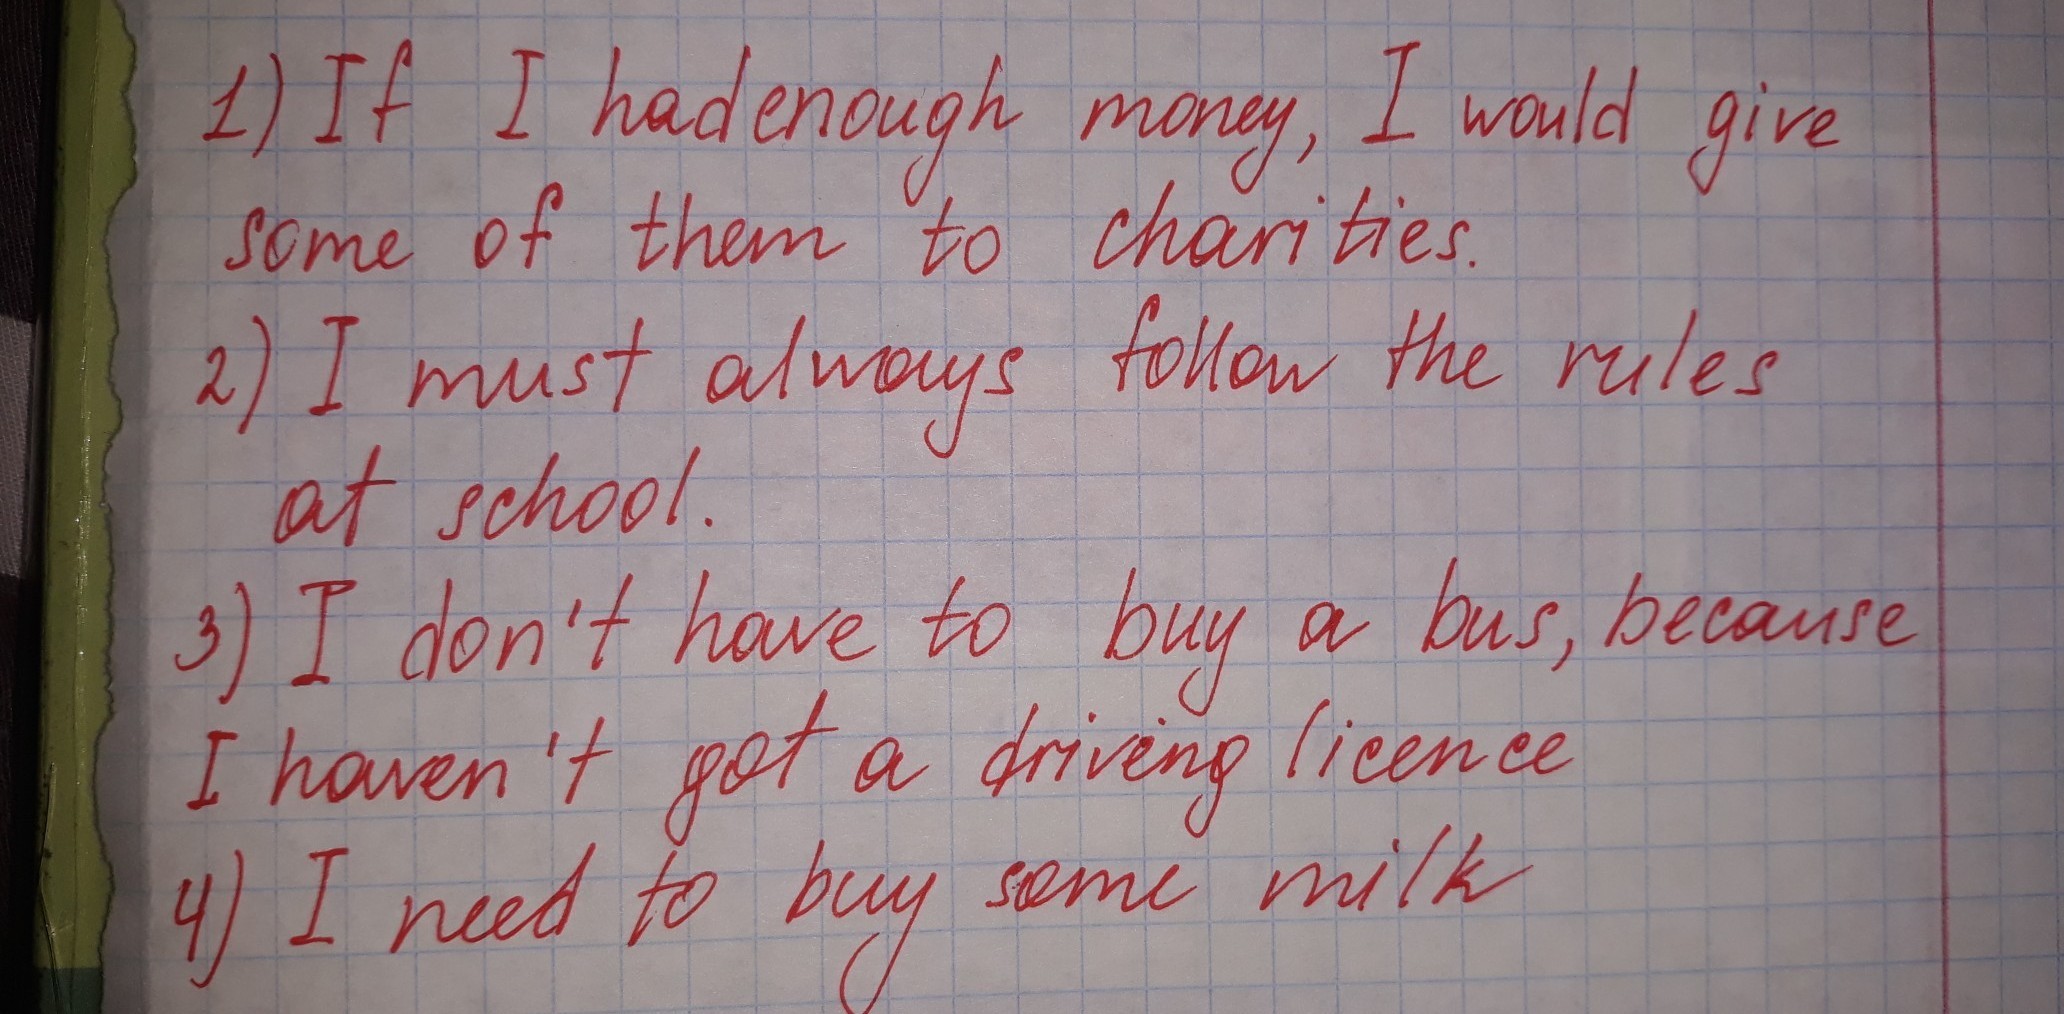 1) If I had enough money, I would give
some of them to charities.
2) I must always follow the rules
at school.
3) I don't have to buy a bus, because
I haven't got a driving licence
4) I need to buy some milk